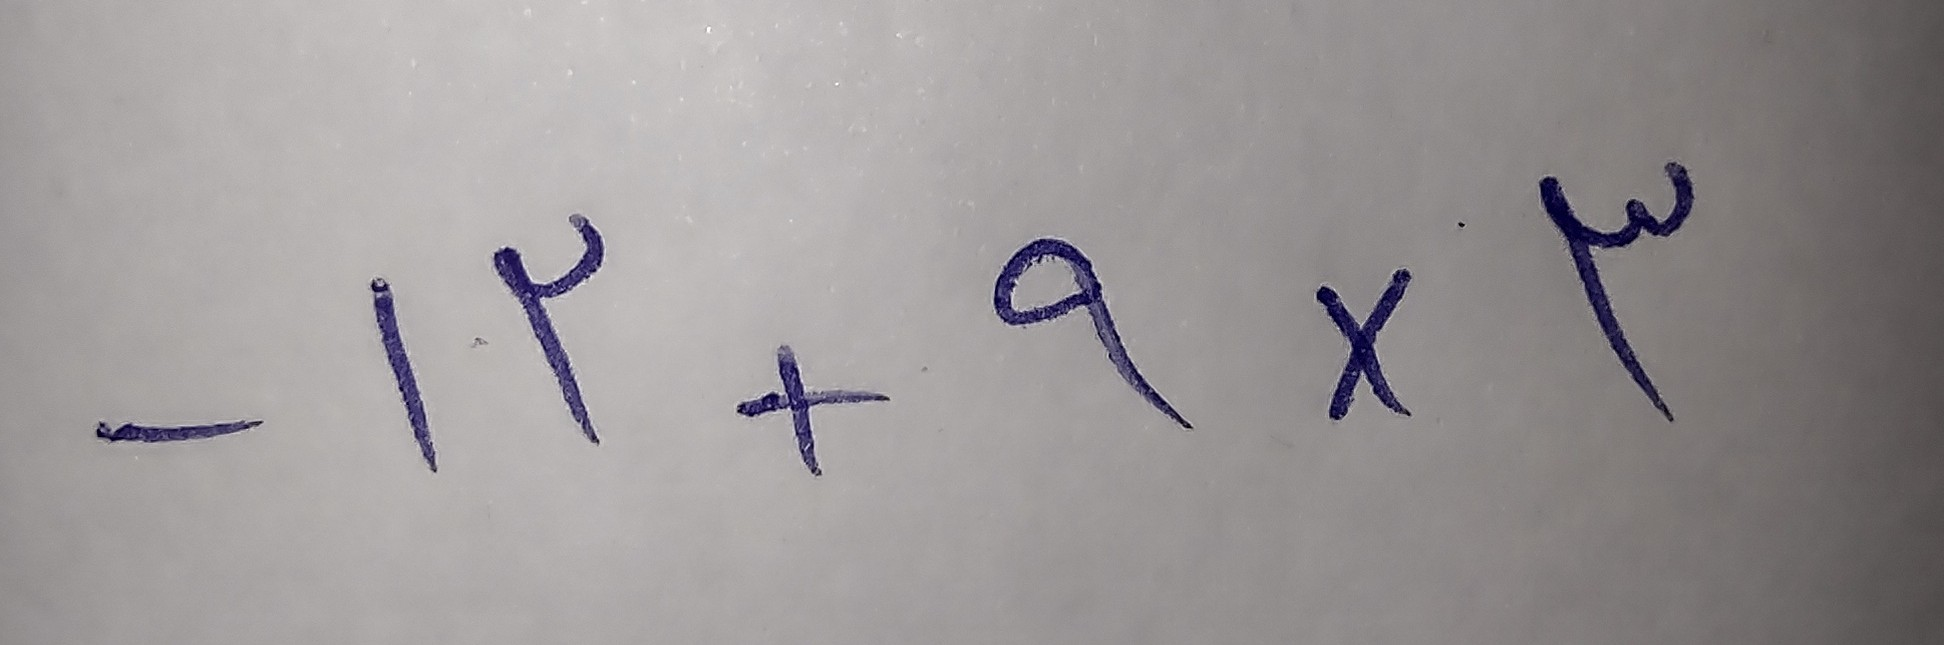 - ۱۲ + ۹ × ۳